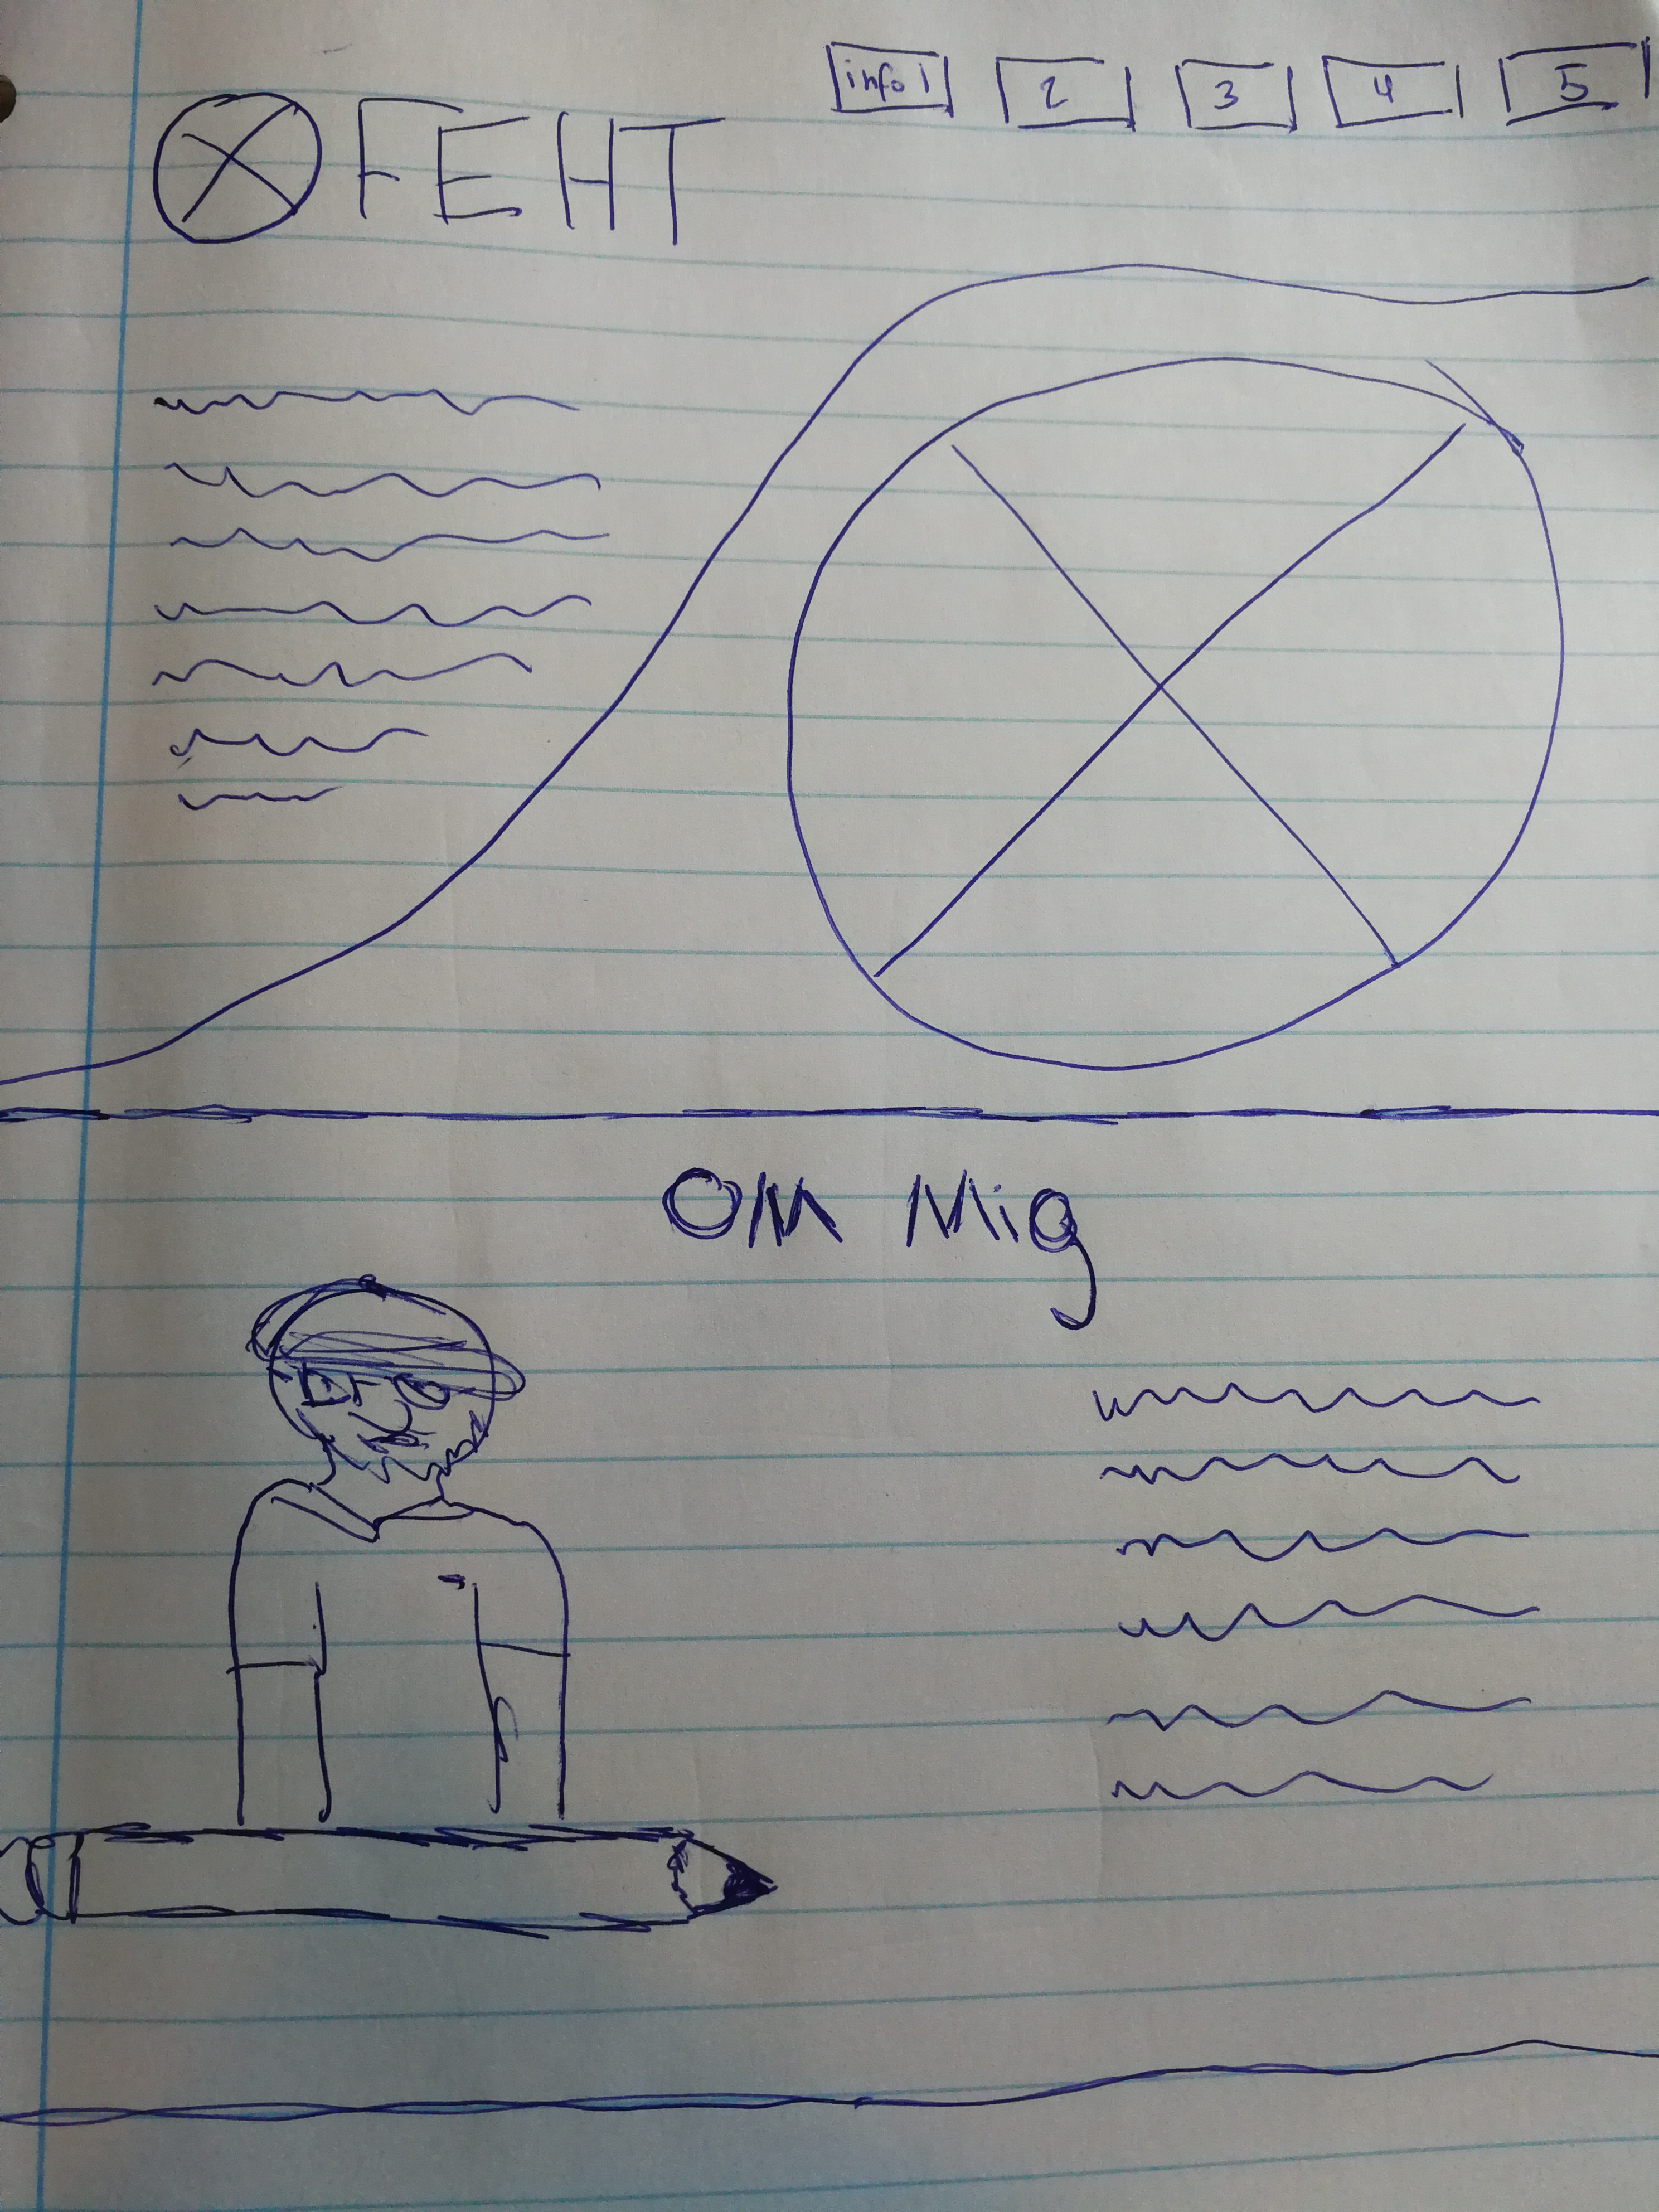 info 1 2 3 4 5
FEHT
OM Mig